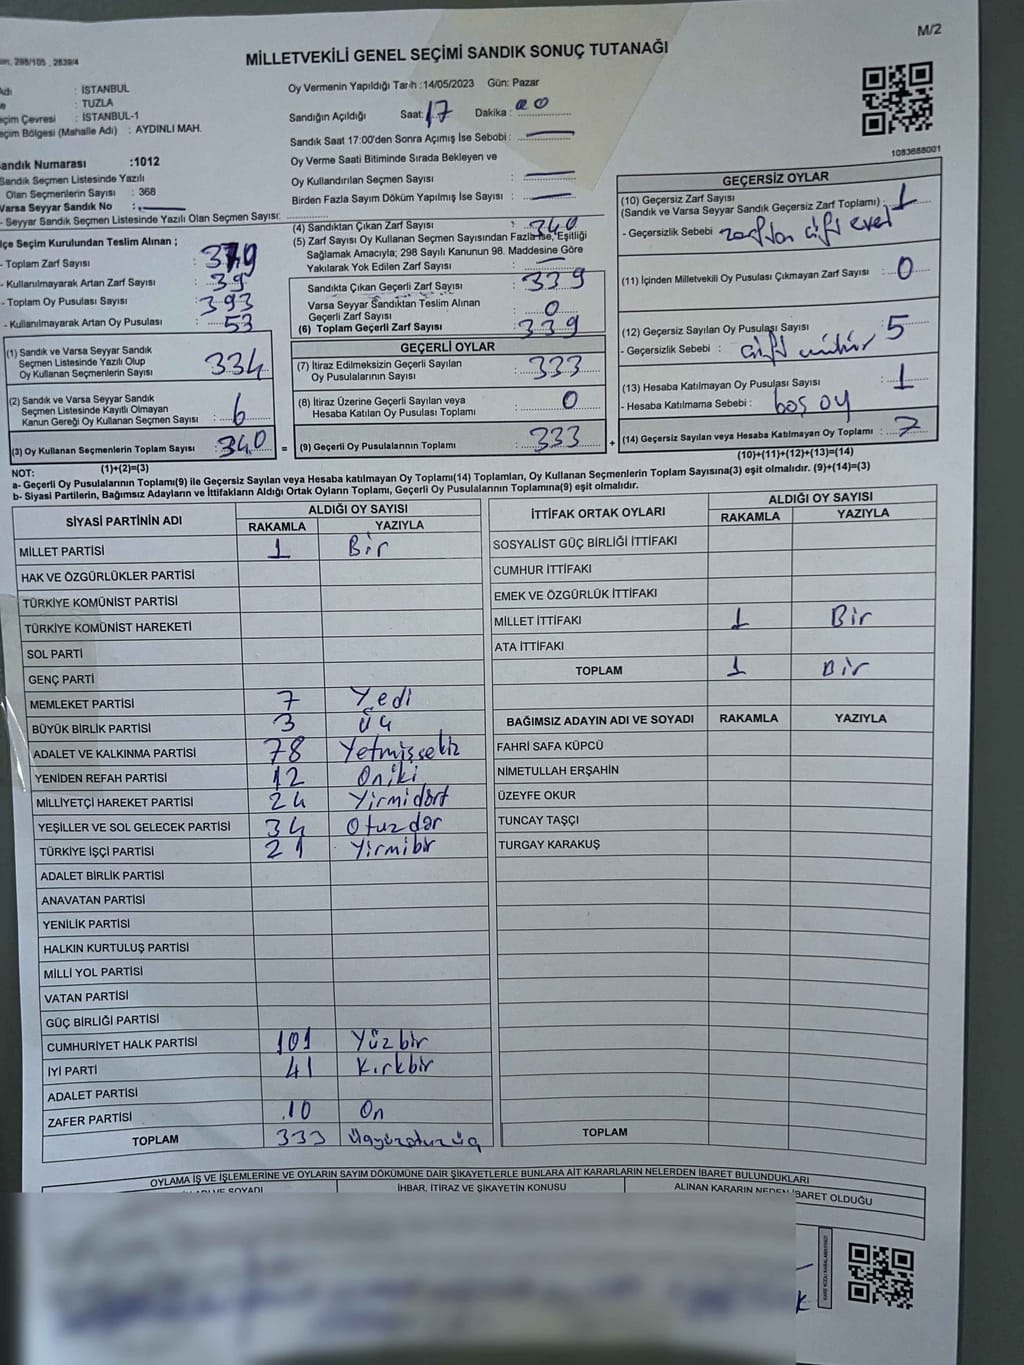 M/2
298/105 , 2839/4
MİLLETVEKİLİ GENEL SEÇİMİ SANDIK SONUÇ TUTANAĞI
: İSTANBUL
: TUZLA
: İSTANBUL-1
(Mahalle Adı) : AYDINLI MAH.
Oy Vermenin Yapıldığı Tarih :14/05/2023 Gün: Pazar
Sandığın Açıldığı Saat: 17 Dakika : 00
Sandık Saat 17:00'den Sonra Açımış İse Sebobi :
Oy Verme Saati Bitiminde Sırada Bekleyen ve
Oy Kullandırılan Seçmen Sayısı :
Birden Fazla Sayım Döküm Yapılmış İse Sayısı :
1083688001
Sandık Numarası :1012
Sandık Seçmen Listesinde Yazılı
Olan Seçmenlerin Sayısı : 368
Varsa Seyyar Sandık No :
- Seyyar Sandık Seçmen Listesinde Yazılı Olan Seçmen Sayısı:
İlçe Seçim Kurulundan Teslim Alınan ;
- Toplam Zarf Sayısı : 379
- Kullanılmayarak Artan Zarf Sayısı : 39
- Toplam Oy Pusulası Sayısı : 393
- Kullanılmayarak Artan Oy Pusulası : 53
(1) Sandık ve Varsa Seyyar Sandık
Seçmen Listesinde Yazılı Olup
Oy Kullanan Seçmenlerin Sayısı : 334
(2) Sandık ve Varsa Seyyar Sandık
Seçmen Listesinde Kayıtlı Olmayan
Kanun Gereği Oy Kullanan Seçmen Sayısı : 6
(3) Oy Kullanan Seçmenlerin Toplam Sayısı : 340 =
(1)+(2)=(3)
(4) Sandıktan Çıkan Zarf Sayısı : 340
(5) Zarf Sayısı Oy Kullanan Seçmen Sayısından Fazla İse, Eşitliği
Sağlamak Amacıyla; 298 Sayılı Kanunun 98. Maddesine Göre
Yakılarak Yok Edilen Zarf Sayısı :
Sandıkta Çıkan Geçerli Zarf Sayısı : 339
Varsa Seyyar Sandıktan Teslim Alınan
Geçerli Zarf Sayısı : 0
(6) Toplam Geçerli Zarf Sayısı : 339
GEÇERLİ OYLAR
(7) İtiraz Edilmeksizin Geçerli Sayılan
Oy Pusulalarının Sayısı : 333
(8) İtiraz Üzerine Geçerli Sayılan veya
Hesaba Katılan Oy Pusulası Toplamı : 0
(9) Geçerli Oy Pusulalarının Toplamı : 333 +
GEÇERSİZ OYLAR
(10) Geçersiz Zarf Sayısı
(Sandık ve Varsa Seyyar Sandık Geçersiz Zarf Toplamı) : 1
- Geçersizlik Sebebi : zarftan çift evet
(11) İçinden Milletvekili Oy Pusulası Çıkmayan Zarf Sayısı : 0
(12) Geçersiz Sayılan Oy Pusulası Sayısı : 5
- Geçersizlik Sebebi : çift mühür
(13) Hesaba Katılmayan Oy Pusulası Sayısı : 1
- Hesaba Katılmama Sebebi : boş oy
(14) Geçersiz Sayılan veya Hesaba Katılmayan Oy Toplamı : 7
(10)+(11)+(12)+(13)=(14)
NOT:
a- Geçerli Oy Pusulalarının Toplamı(9) ile Geçersiz Sayılan veya Hesaba katılmayan Oy Toplamı(14) Toplamları, Oy Kullanan Seçmenlerin Toplam Sayısına(3) eşit olmalıdır. (9)+(14)=(3)
b- Siyasi Partilerin, Bağımsız Adayların ve İttifakların Aldığı Ortak Oyların Toplamı, Geçerli Oy Pusulalarının Toplamına(9) eşit olmalıdır.
SİYASİ PARTİNİN ADI ALDIĞI OY SAYISI
RAKAMLA YAZIYLA
MİLLET PARTİSİ 1 Bir
HAK VE ÖZGÜRLÜKLER PARTİSİ
TÜRKİYE KOMÜNİST PARTİSİ
TÜRKİYE KOMÜNİST HAREKETİ
SOL PARTİ
GENÇ PARTİ
MEMLEKET PARTİSİ 7 Yedi
BÜYÜK BİRLİK PARTİSİ 3 Üç
ADALET VE KALKINMA PARTİSİ 78 Yetmişsekiz
YENİDEN REFAH PARTİSİ 12 Oniki
MİLLİYETÇİ HAREKET PARTİSİ 24 Yirmidört
YEŞİLLER VE SOL GELECEK PARTİSİ 34 Otuzdör
TÜRKİYE İŞÇİ PARTİSİ 21 Yirmibir
ADALET BİRLİK PARTİSİ
ANAVATAN PARTİSİ
YENİLİK PARTİSİ
HALKIN KURTULUŞ PARTİSİ
MİLLİ YOL PARTİSİ
VATAN PARTİSİ
GÜÇ BİRLİĞİ PARTİSİ
CUMHURİYET HALK PARTİSİ 101 Yüzbir
İYİ PARTİ 41 Kırkbir
ADALET PARTİSİ
ZAFER PARTİSİ 10 On
TOPLAM 333 Üçyüzotuzüç
İTTİFAK ORTAK OYLARI ALDIĞI OY SAYISI
RAKAMLA YAZIYLA
SOSYALİST GÜÇ BİRLİĞİ İTTİFAKI
CUMHUR İTTİFAKI
EMEK VE ÖZGÜRLÜK İTTİFAKI
MİLLET İTTİFAKI 1 Bir
ATA İTTİFAKI
TOPLAM 1 Bir
BAĞIMSIZ ADAYIN ADI VE SOYADI RAKAMLA YAZIYLA
FAHRİ SAFA KÜPCÜ
NİMETULLAH ERŞAHİN
ÜZEYFE OKUR
TUNCAY TAŞÇI
TURGAY KARAKUŞ
TOPLAM
OYLAMA İŞ VE İŞLEMLERİNE VE OYLARIN SAYIM DÖKÜMÜNE DAİR ŞİKAYETLERLE BUNLARA AİT KARARLARIN NELERDEN İBARET BULUNDUKLARI
SOYADI İHBAR, İTİRAZ VE ŞİKAYETİN KONUSU ALINAN KARARIN NEDEN İBARET OLDUĞU